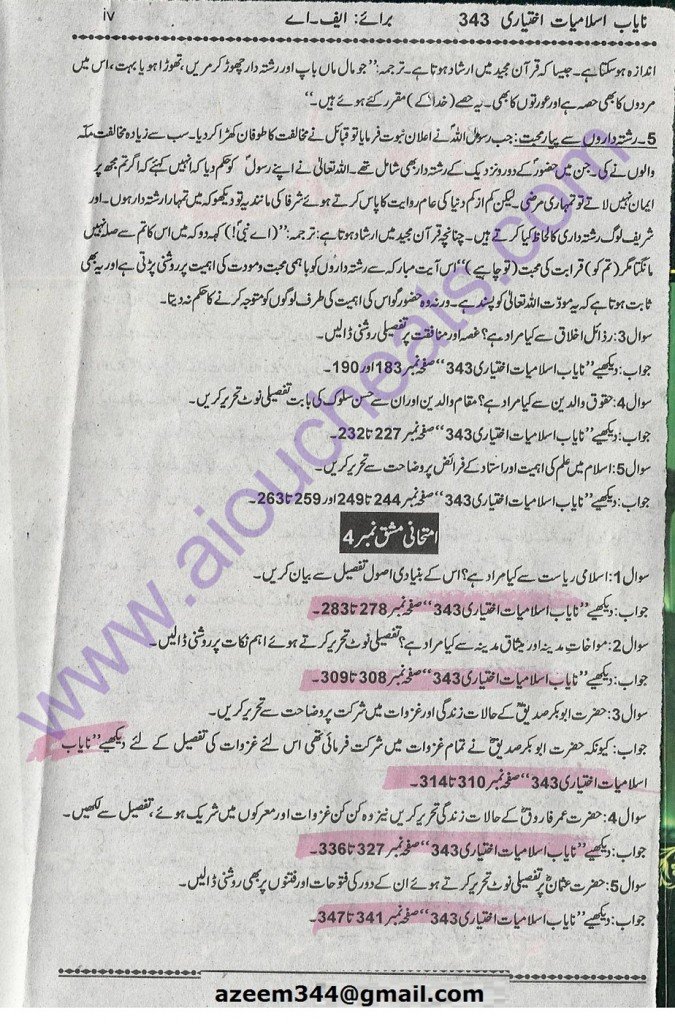 نایاب اسلامیات اختیاری 343 برائے: ایف۔اے iv
اندازہ ہوسکتا ہے۔ جیسا کہ قرآن مجید میں ارشاد ہوتا ہے۔ ترجمہ: ”جو مال ماں باپ اور رشتہ دار چھوڑ کر مریں، تھوڑا ہو یا بہت، اس میں
مردوں کا بھی حصہ ہے اور عورتوں کا بھی۔ یہ حصے (خدا کے) مقرر کئے ہوئے ہیں۔“
5۔ رشتہ داروں سے پیار محبت: جب رسول اللہؐ نے اعلان نبوت فرمایا تو قبائل نے مخالفت کا طوفان کھڑا کر دیا۔ سب سے زیادہ مخالفت مکہ
والوں نے کی۔ جن میں حضورؐ کے دور و نزدیک کے رشتہ دار بھی شامل تھے۔ اللہ تعالیٰ نے اپنے رسولؐ کو حکم دیا کہ انہیں کہئے کہ اگر تم مجھ پر
ایمان نہیں لاتے تو تمہاری مرضی۔ لیکن کم از کم دنیا کی عام روایت کا پاس کرتے ہوئے شرفا کی مانند یہ تو دیکھو کہ میں تمہارا رشتہ دار ہوں۔ اور
شریف لوگ رشتہ داری کا لحاظ کیا کرتے ہیں۔ چنانچہ قرآن مجید میں ارشاد ہوتا ہے: ترجمہ: ”(اے نبیؐ!) کہہ دو کہ میں اس کا تم سے صلہ نہیں
مانگتا مگر (تم کو) قرابت کی محبت (تو چاہیے)“ اس آیت مبارکہ سے رشتہ داروں کو باہمی محبت و مودت کی اہمیت پر روشنی پڑتی ہے اور یہ بھی
ثابت ہوتا ہے کہ یہ مودت اللہ تعالیٰ کو پسند ہے۔ ورنہ وہ حضورؐ کو اس کی اہمیت کی طرف لوگوں کو متوجہ کرنے کا حکم نہ دیتا۔
سوال 3: رذائل اخلاق سے کیا مراد ہے؟ غصہ اور منافقت پر تفصیلی روشنی ڈالیں۔
جواب: دیکھیے ”نایاب اسلامیات اختیاری 343“ صفحہ نمبر 183 اور 190۔
سوال 4: حقوق والدین سے کیا مراد ہے؟ مقام والدین اور ان سے حسن سلوک کی بابت تفصیلی نوٹ تحریر کریں۔
جواب: دیکھیے ”نایاب اسلامیات اختیاری 343“ صفحہ نمبر 227 تا 232۔
سوال 5: اسلام میں علم کی اہمیت اور استاد کے فرائض پر وضاحت سے تحریر کریں۔
جواب: دیکھیے ”نایاب اسلامیات اختیاری 343“ صفحہ نمبر 244 تا 249 اور 259 تا 263۔
امتحانی مشق نمبر 4
سوال 1: اسلامی ریاست سے کیا مراد ہے؟ اس کے بنیادی اصول تفصیل سے بیان کریں۔
جواب: دیکھیے ”نایاب اسلامیات اختیاری 343“ صفحہ نمبر 278 تا 283۔
سوال 2: مواخات مدینہ اور میثاق مدینہ سے کیا مراد ہے؟ تفصیلی نوٹ تحریر کرتے ہوئے اہم نکات پر روشنی ڈالیں۔
جواب: دیکھیے ”نایاب اسلامیات اختیاری 343“ صفحہ نمبر 308 تا 309۔
سوال 3: حضرت ابوبکر صدیقؓ کے حالات زندگی اور غزوات میں شرکت پر وضاحت سے تحریر کریں۔
جواب: کیونکہ حضرت ابوبکر صدیقؓ نے تمام غزوات میں شرکت فرمائی تھی اس لئے غزوات کی تفصیل کے لئے دیکھیے ”نایاب
اسلامیات اختیاری 343“ صفحہ نمبر 310 تا 314۔
سوال 4: حضرت عمر فاروقؓ کے حالات زندگی تحریر کریں نیز وہ کن کن غزوات اور معرکوں میں شریک ہوئے، تفصیل سے لکھیں۔
جواب: دیکھیے ”نایاب اسلامیات اختیاری 343“ صفحہ نمبر 327 تا 336۔
سوال 5: حضرت عثمانؓ پر تفصیلی نوٹ تحریر کرتے ہوئے ان کے دور کی فتوحات اور فتنوں پر بھی روشنی ڈالیں۔
جواب: دیکھیے ”نایاب اسلامیات اختیاری 343“ صفحہ نمبر 341 تا 347۔
www.aioucheats.com
azeem344@gmail.com